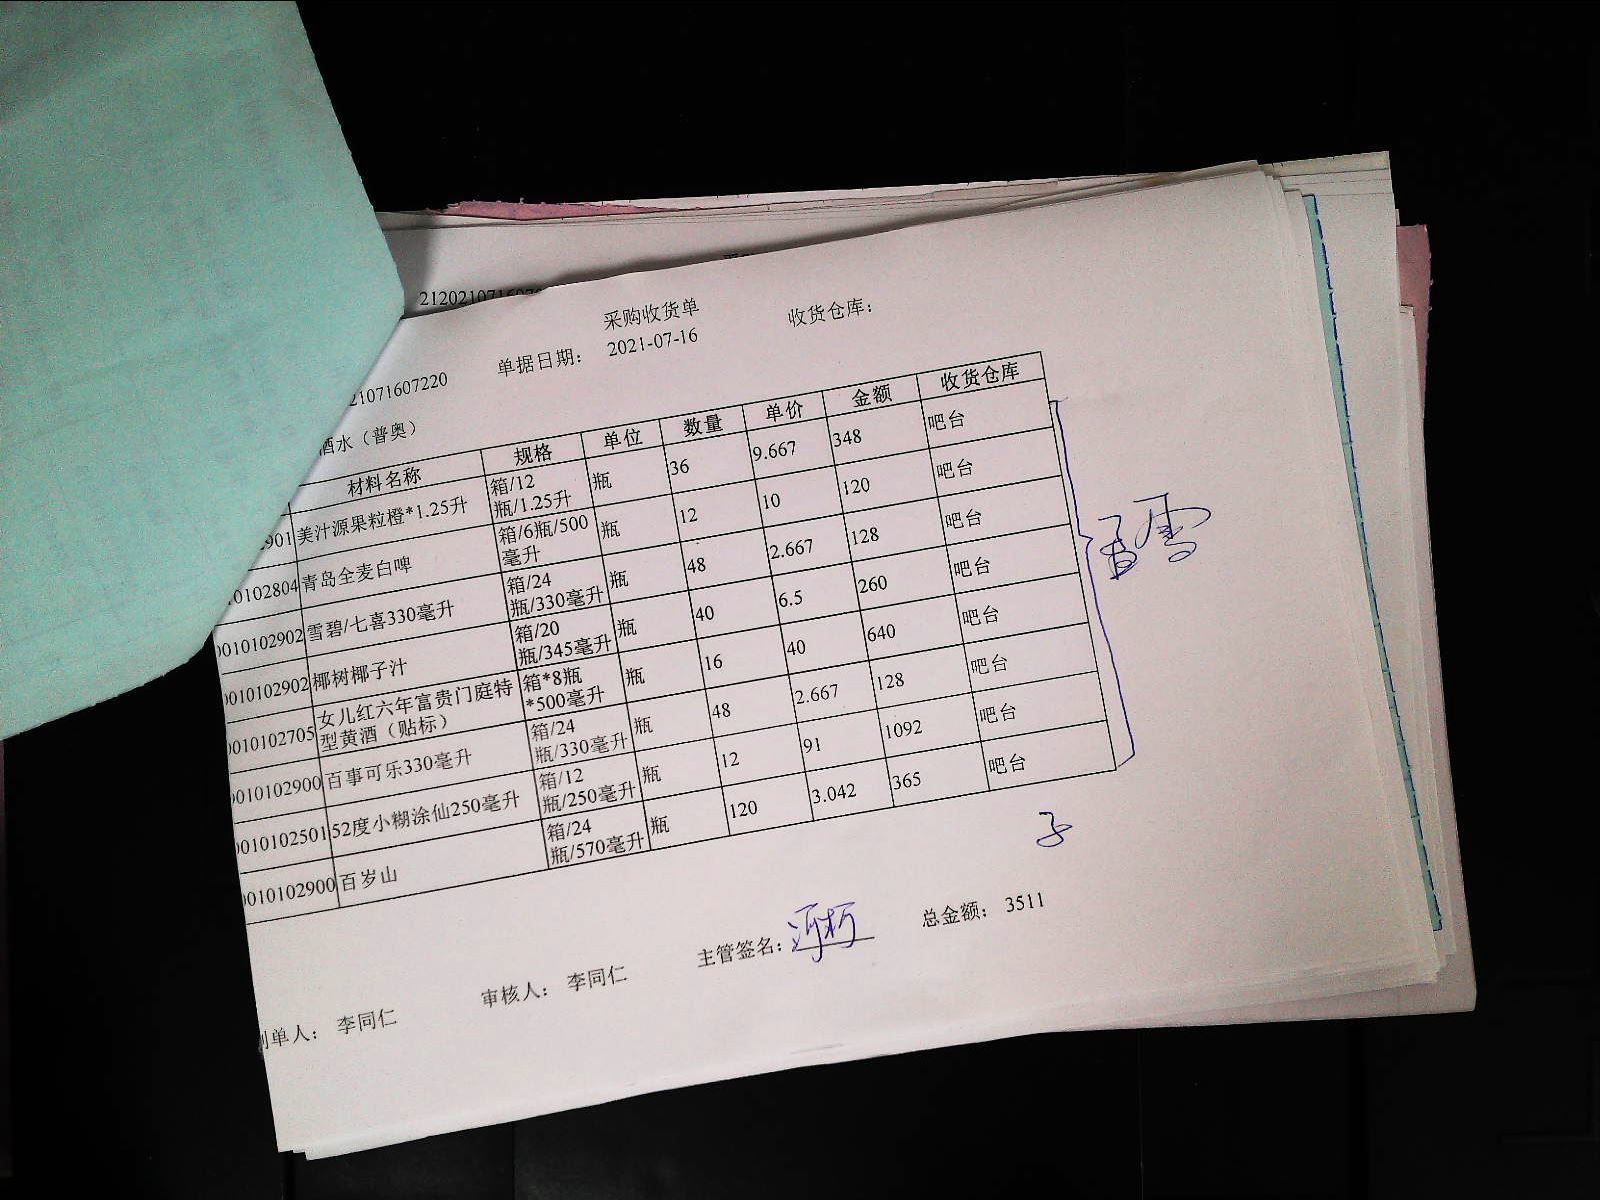 2120210716070
采购收货单
收货仓库：
单据日期： 2021-07-16
21071607220
酒水（普奥）
材料名称 规格 单位 数量 单价 金额 收货仓库
2901 美汁源果粒橙*1.25升 箱/12瓶/1.25升 瓶 36 9.667 348 吧台
0102804 青岛全麦白啤 箱/6瓶/500毫升 瓶 12 10 120 吧台
0010102902 雪碧/七喜330毫升 箱/24瓶/330毫升 瓶 48 2.667 128 吧台
0010102902 椰树椰子汁 箱/20瓶/345毫升 瓶 40 6.5 260 吧台
0010102705 女儿红六年富贵门庭特型黄酒（贴标） 箱*8瓶*500毫升 瓶 16 40 640 吧台
0010102900 百事可乐330毫升 箱/24瓶/330毫升 瓶 48 2.667 128 吧台
0010102501 52度小糊涂仙250毫升 箱/12瓶/250毫升 瓶 12 91 1092 吧台
0010102900 百岁山 箱/24瓶/570毫升 瓶 120 3.042 365 吧台
总金额： 3511
主管签名：
审核人： 李同仁
制单人： 李同仁